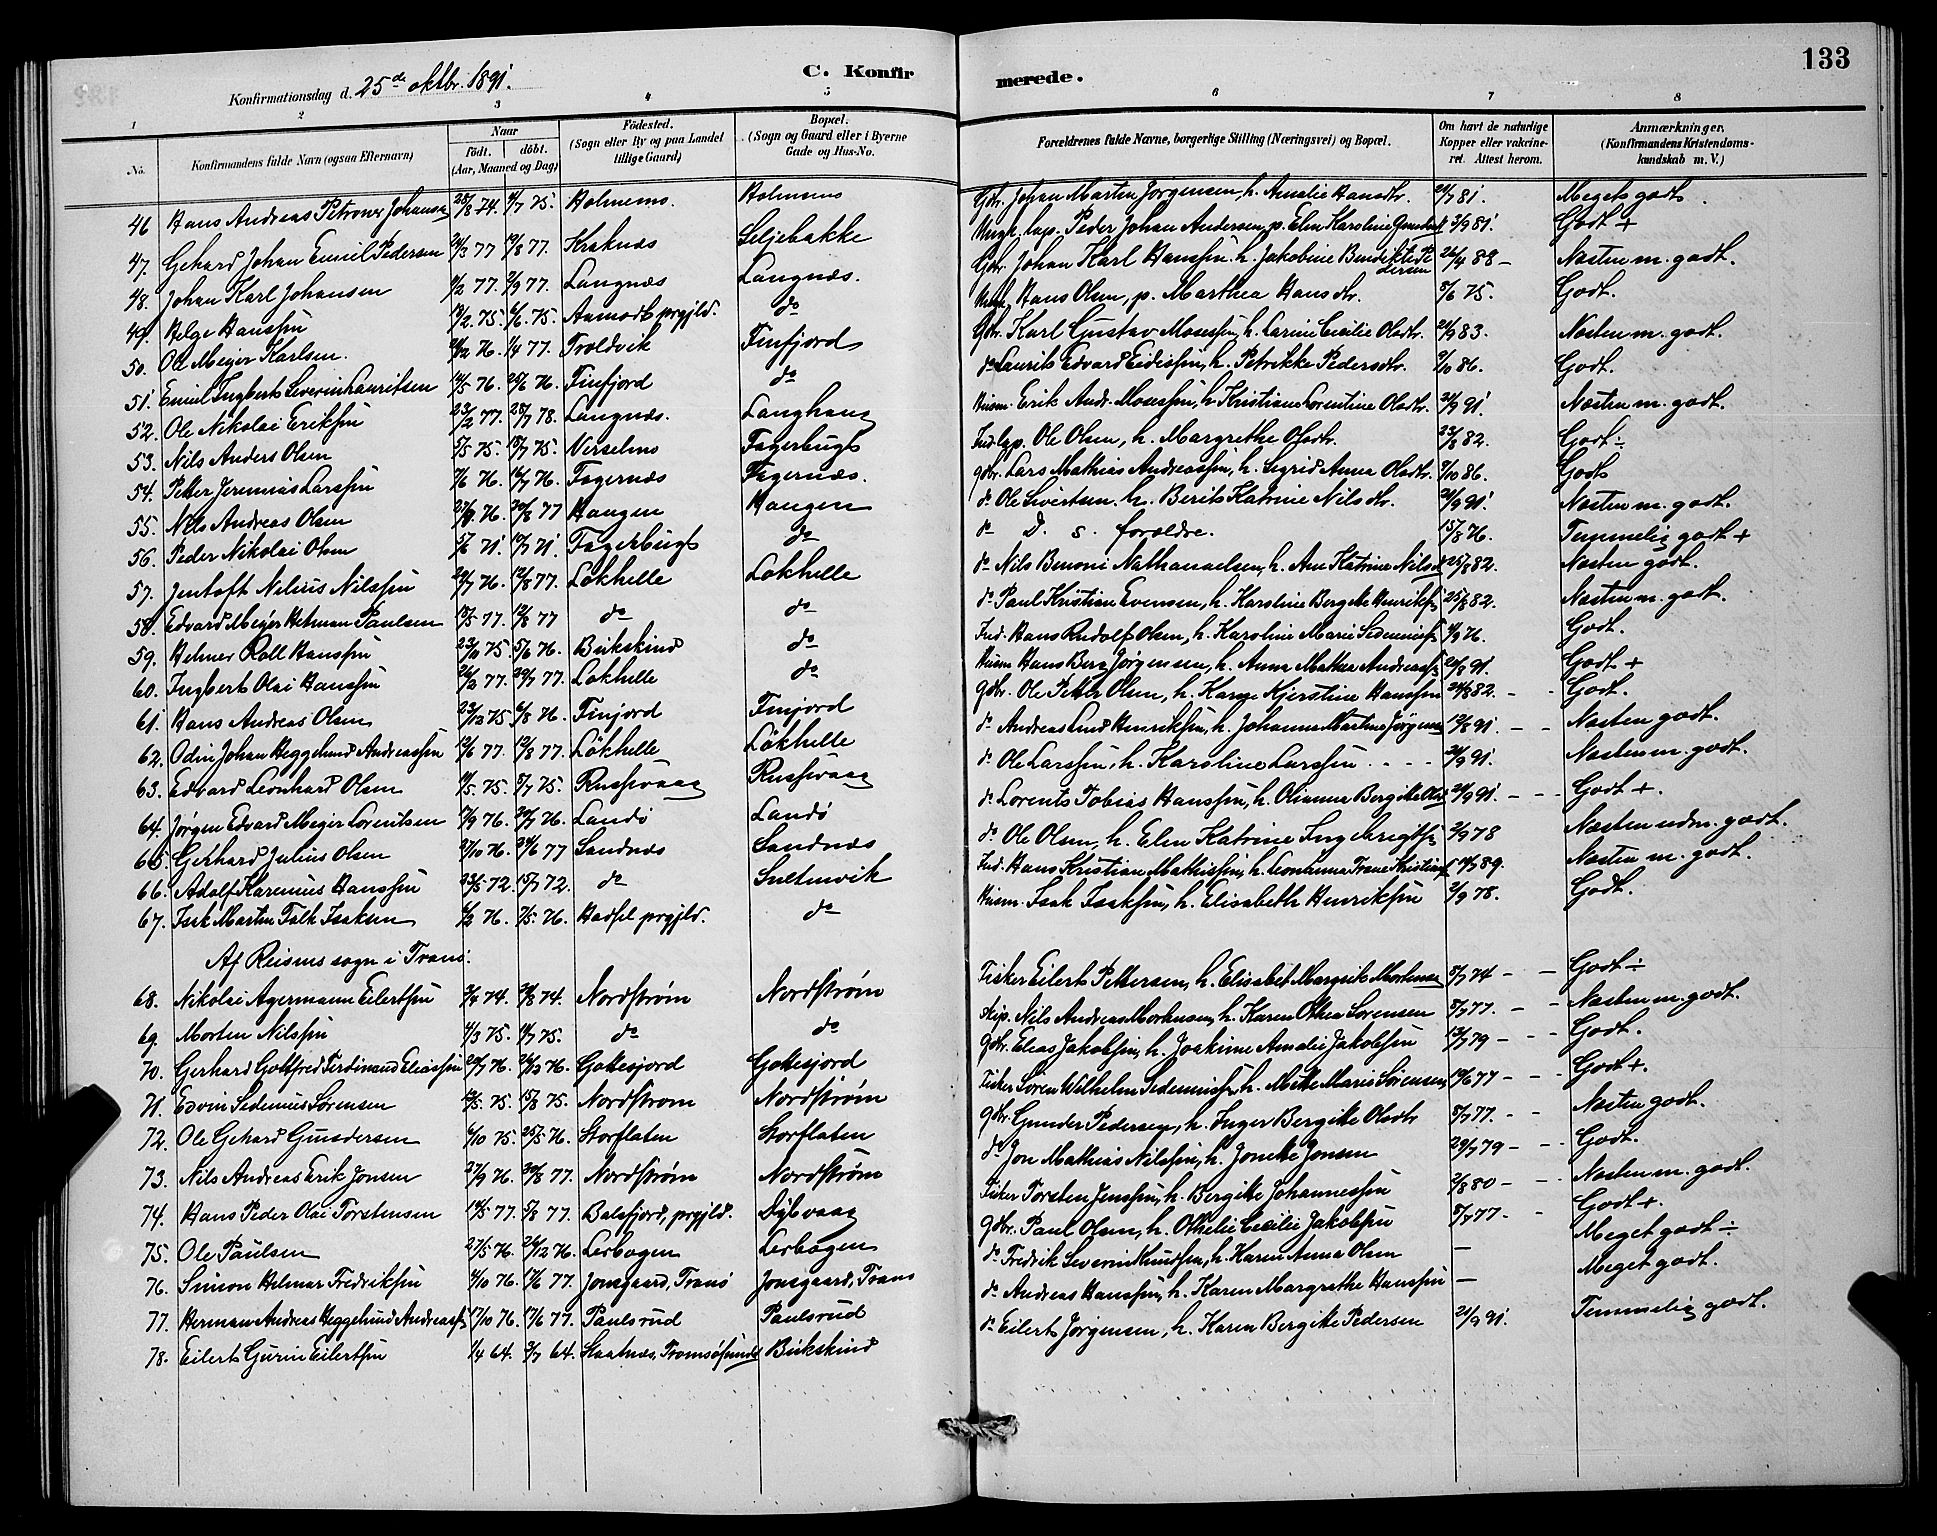 C. Konfirmerede.
133
Konfirmationsdag d. 25de oktbr. 1891.
1 2 3 4 5 6 7 8
No.
Konfirmandens fulde Navn (ogsaa Efternavn)
Naar
Födt. döbt.
(Aar, Maaned og Dag)
Födested.
(Sogn eller By og paa Landet
tillige Gaard)
Bopæl.
(Sogn og Gaard eller i Byerne
Gade og Hus-No.
Forældrenes fulde Navne, borgerlige Stilling (Næringsvei) og Bopæl.
Om havt de naturlige
Kopper eller vakcine-
ret. Attest herom.
Anmærkninger.
(Konfirmandens Kristendoms-
kundskab m. V.)
46 Hans Andreas Petroner Johansen 25/8 74. 4/7 75. Holmenes. Holmenes Gbr. Johan Marten Jørgensen, h. Amalie Hansdtr. 24/7 81. Meget godt.
47. Gehard Johan Emil Pedersen 24/3 77 19/8 77. Kraknæs Seljebakke Peder Johan Andersen, p. Elen Karoline 3/9 81. Godt +
48. Johan Karl Johansen 1/2 77. 2/9 77. Langnæs Langnæs. Gbr. Johan Karl Hanssen h. Jakobine 26/4 88 - Næsten m. godt.
49. Helge Hanssen 19/2 75. 6/6 75. Aamodt prgjld. do Hans Olsen, p. Marthea Hansdtr. 5/6 75. Godt.
50. Ole Meyer Karlsen. 76. 1/4 77. Troldvik Finfjord Gbr. Karl Gustav Mosessen, h. Larine Cecilie Olsdtr. 24/9 83. Næsten m. godt.
51. Emil Ingbert Severin Lauritsen 14/5 76. 25/6 76. Finfjord do do Laurits Edvard Eidissen, h. Petrikke Pedersdtr. 3/10 86. Godt.
52. Ole Nikolai Eriksen 23/2 77. 28/7 78. Langnæs. Langhaug Husm. Erik Andr. Mosessen, h. Kristiane Lorentine Olsdtr. 24/9 91. Næsten m. godt.
53. Nils Anders Olsen 5/5 75. 18/7 75. Verselmo Fagerbugt Ole Olsen, h. Margrethe Olsdtr. 23/8 82. Godt ÷
54. Petter Jeremias Larssen 7/6 76. 16/7 76. Fagernæs Fagernæs. gbr. Lars Mathias Andreassen, h. Sigrid Anna Olsdtr. 3/10 86. Godt
55. Nils Andreas Olsen 76. 30/8 77 Haugen Haugen do Ole Sivertsen h. Berit Katrine Nilsdtr. 24/9 91. Næsten m. godt.
56. Peder Nikolai Olsen 5/6 71. 19/7 71. Fagerbugt do do D. s. forældre. 15/8 76. Temmelig godt +
57. Jentoft Nelius Nilssen 29/7 76. 12/8 77. Løkhelle Løkhelle do Nils Benoni Nathanaelsen, h. Ane Katrine Nilsd 25/8 82. Næsten godt.
58. Edvard Meyer Hetman Paulsen 18/5 77. 12/8 77 do do do Paul Kristian Evensen, h. Karoline Bergitte Henriks 25/8 82. Næsten m. godt.
59. Helmer Roll Hanssen 23/11 75. 5/6 76. Bukskind do Ind. Hans Rudolf Olsen, h. Karoline Marie 9/9 76. Godt.
60. Ingbert Olai Hanssen 26/2 77. 29/7 77. Løkhelle do Husm Hans Berg Jørgensen, h. Anna Mathea Andreass 24/9 91. Godt +
61. Hans Andreas Olsen 23/12 75 6/8 76. Finjord Finjord gbr. Ole Petter Olsen, h. Karen Kjerstine Hanssen 24/8 82. - - Godt.
62. Odin Johan Heggelund Andreassen 12/6 77. 12/8 77. Løkhelle Løkhelle do Andreas Lund Henriksen, h. Johanna Martine Jørgens 13/6 91. - - Næsten godt.
63. Edvard Leonhard Olsen 11/5 75. 5/7 75. Russevaag Russevaag do Ole Larssen, h. Karoline Larssen . - - - 24/9 91. Næsten m. godt.
64. Jørgen Edvard Meyer Lorentsen 17/9 76. 76. Landø Landø do Lorents Tobias Hanssen, h. Olianna Bergitte 24/9 91. - - - Godt +.
65. Gerhard Julius Olsen 27/10 76. 24/6 77 Sandnæs Sandnæs do Ole Olsen, h. Elen Katrine 2/9 78 Næsten udm. godt.
66. Adolf Karenius Hanssen 23/5 72. 15/7 72. do Sultenvik Ind. Hans Kristian Mathissen, h. 89. Næsten m. godt.
67. Isak Martin Falk Isaksen 6/2 76. 7/5 76. Hadsel prgjld. do Husm. Isak Isaksen, h. Elisabeth Henriksen 2/9 78. Godt.
Af sogn i Tranø.
68. Nikolai Agermann Eilertsen 3/4 74. 74. Nordstrøm Nordstrøm Fisker Eilert Pettersen, h. Elisabet Margrete 8/7 74 - - Godt ÷
69. Morten Nilssen 4/3 75. 18/7 75. do do Nils Andreas Mortensen, h. Karen Othea Sørensen 8/7 77. - - Næsten m. godt.
70. Gerhard Gottfred Ferdinand Eliassen 29/7 76. 26/12 76. Gottesjord Gottesjord gbr. Elias Jakobsen, h. Joakime Amalie Jakobsen 13/7 79 - - - Godt.
71. Edvin Sedenius Sørensen 12/5 75. 15/8 75. Nordstrøm Nordstrøm Fisker Søren Wilhelm h. Mette Marie Sørensen 77 - - - Godt +.
72. Ole Gehard Gundersen 6/10 75. 25/5 76. Storflaten Storflaten gbr. Gunder Pedersen, h. Inger Bergitte Olsdtr 8/7 77. - - Næsten godt.
73. Nils Andreas Erik Jonsen 27/9 76. 30/8 77. Nordstrøm Nordstrøm do Jon Mathias Nilssen, h. Jonette Jonsen 29/7 79 - - - Godt.
74. Hans Peder Olai Torstensen 14/5 77. 5/8 77. Balsfjord, prgjld. Dybvaag Fisker Torsten Jenssen, h. Bergitte Johannessen 2/8 80 - - - Næsten m. godt.
75. Ole Paulsen 27/5 76. 26/12 76. Lerbogen Lerbogen gbr. Paul Olsen, h. Othelie Cecilie Jakobsen 8/7 77. - - Godt +.
76. Simon Helmer Fredriksen 9/10 76. 17/6 77. Jonsgaard, Tranø Jonsgaard, Tranø do Fredrik Severin Knudsen, h. Karen Anna Olsen - Meget godt ÷
77. Herman Andreas Heggelund Andreass 17/10 76. 17/6 77. Paulsrud Paulsrud do Andreas Hanssen, h. Karen Margrethe Hanssen - Meget godt.
78. Eilert Gurin Eilertsen 1/4 64. 3/7 64. Skatnæs, Tromsøsundet Bukskind do Eilert Jørgensen, h. Karen Bergitte Pedersen 21/9 91. Temmelig godt.